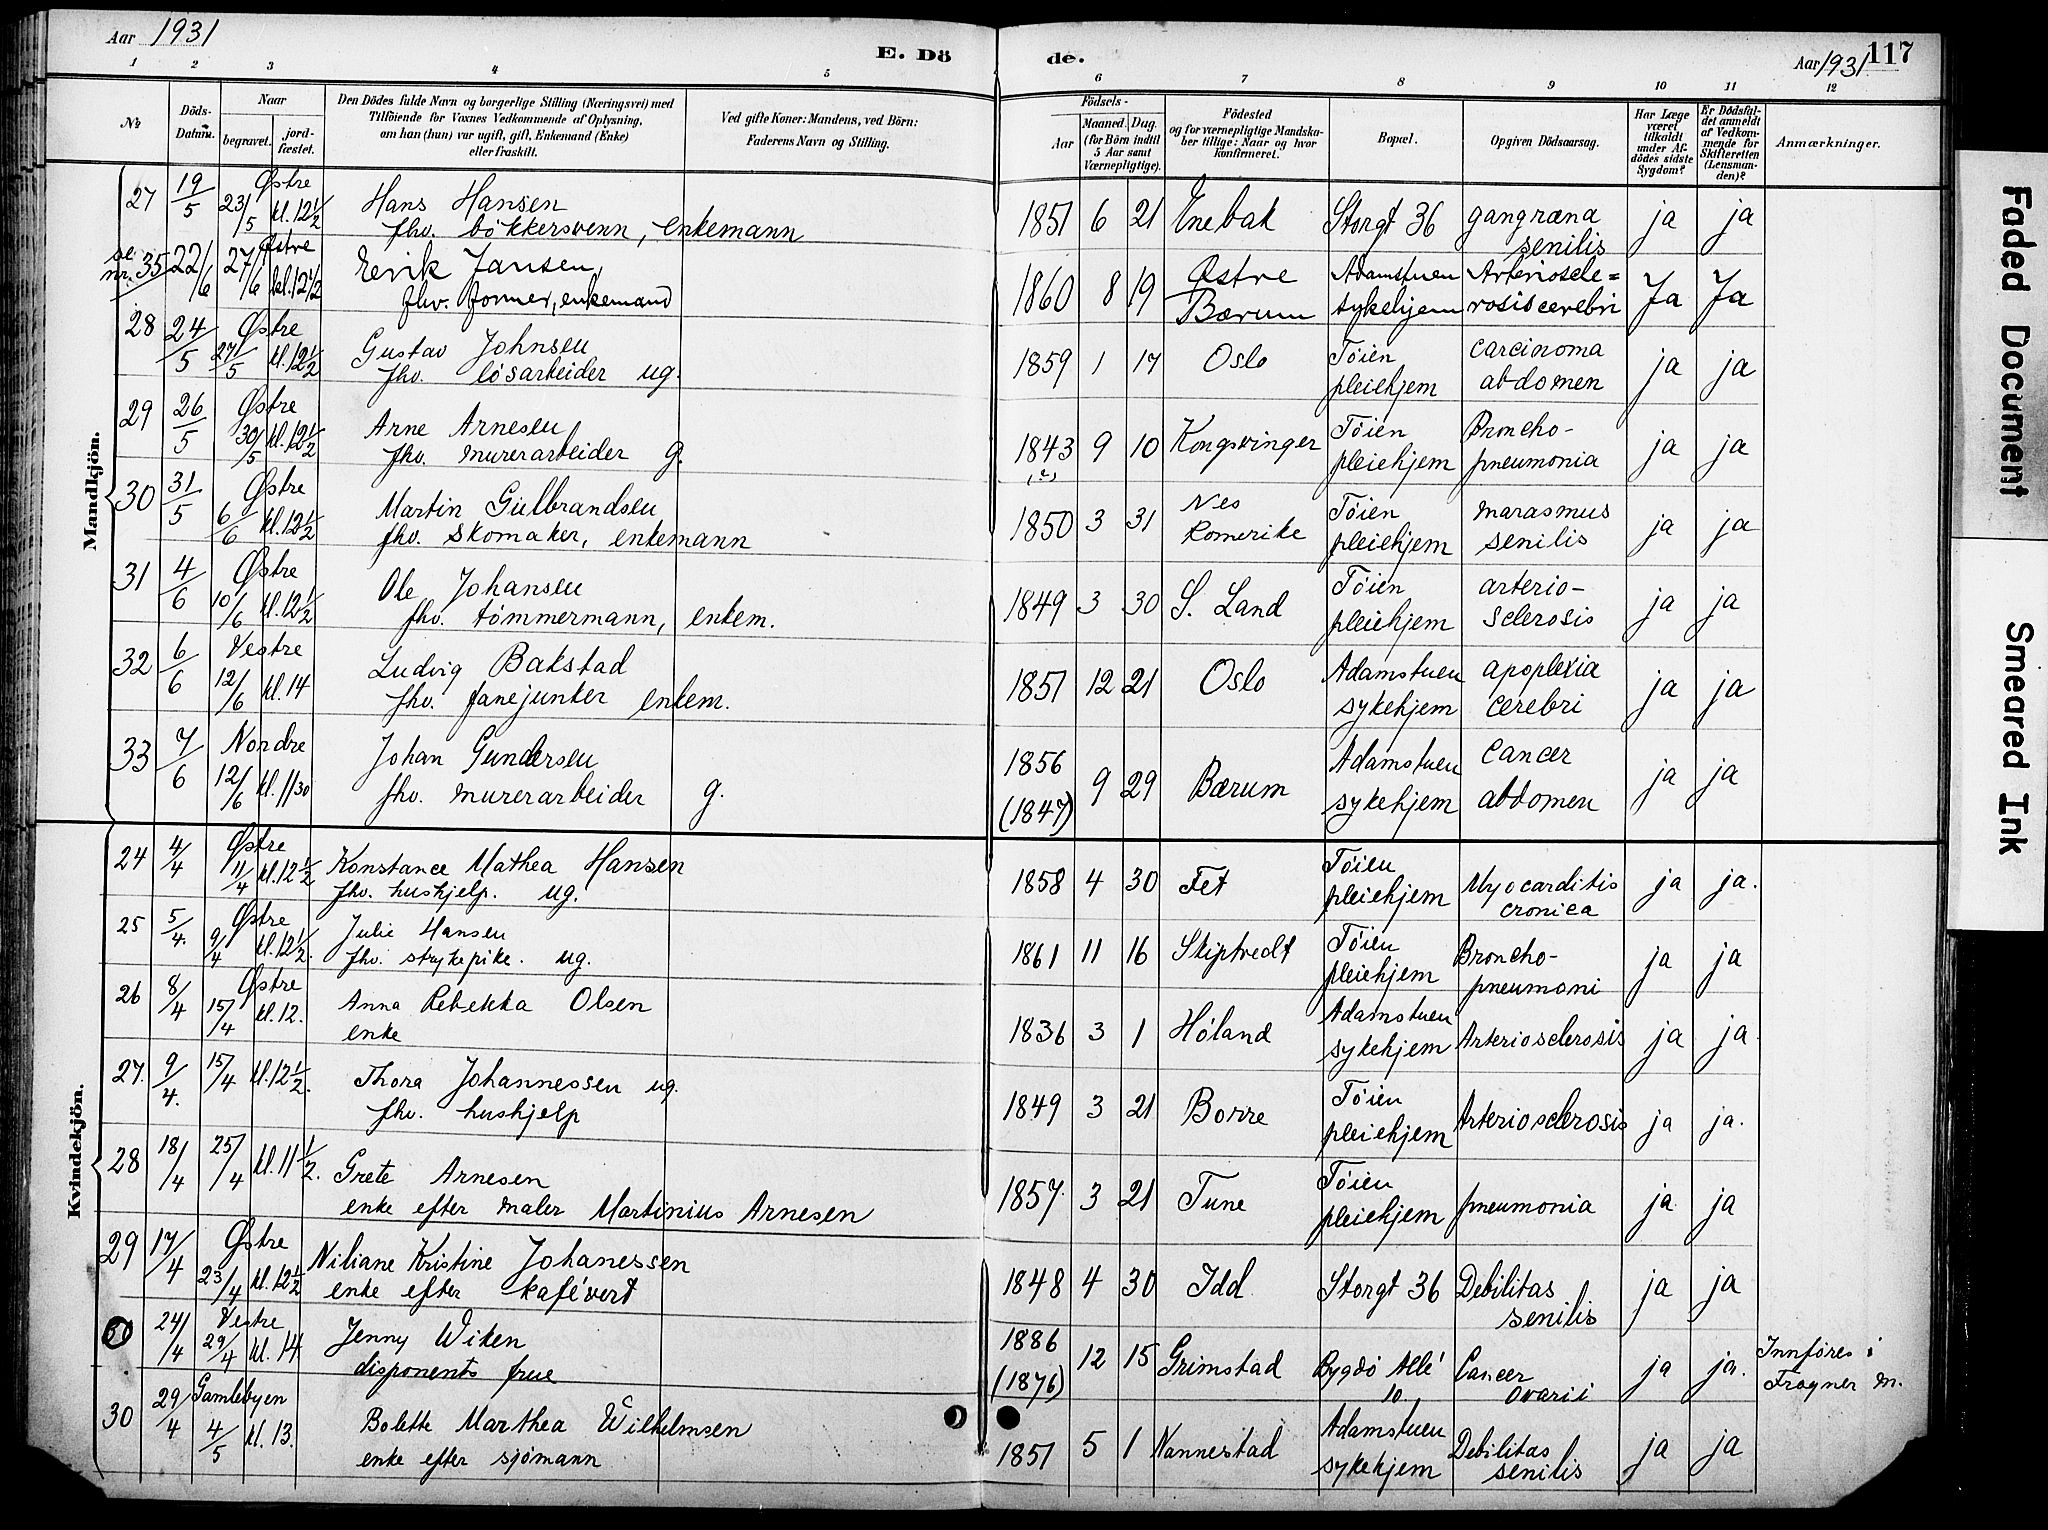 Aar 1931
E. Dö
de.
Aar 1931 117
1 2 3 4 5 6 7 8 9 10 11 12
No.
Döds-
Datum.
Naar
begravet.
jord-
fæstet.
Den Dödes fulde Navn og borgerlige Stilling (Næringsvei) med
Tilföiende for Voxnes Vedkommende af Oplysning,
om han (hun) var ugift, gift, Enkemand (Enke)
eller fraskilt.
Ved gifte Koner: Mandens, ved Börn:
Faderens Navn og Stilling.
Födsels-
Aar
Maaned. Dag.
(for Börn indtil
5 Aar samt
Værnepligtige).
Födested
og for værnepligtige Mandska-
ber tillige: Naar og hvor
konfirmeret.
Bopæl.
Opgiven Dödsaarsag.
Har Læge
været
tilkaldt
under Af-
dödes sidste
Sygdom?
Er Dödsfal-
det anmeldt
af Vedkom-
mende for
Skifteretten
(Lensman-
den)?
Anmærkninger.
Mandkjön.
27 19/5 23/5 Østre kl. 12 1/2 Hans Hansen
fhv. bøkkersvenn, enkemann
1851 6 21 Enebak Storgt 36 gangræna
senilis ja ja
se nr. 35 22/6 27/6 Østre kl. 12 1/2 Erik Jansen,
fhv. former, enkemand
1860 8 19 Østre
Bærum Adamstuen
sykehjem Arterioscle=
rosis cerebri Ja Ja
28 24/5 Østre 27/5 kl. 12 1/2 Gustav Johnsen
fhv. løsarbeider ug.
1859 1 17 Oslo Tøien
pleiehjem carcinoma
abdomen ja ja
29 26/5 Østre 30/5 kl. 12 1/2 Arne Arnesen
fhv. murerarbeider g.
1843 (?) 9 10 Kongsvinger Tøien
pleiehjem Broncho-
pneumonia ja ja
30 31/5 Østre 6/6 kl. 12 1/2 Martin Gulbrandsen
fhv. skomaker, enkemann
1850 3 31 Nes
Romerike Tøien
pleiehjem marasmus
senilis ja ja
31 4/6 Østre 10/6 kl. 12 1/2 Ole Johansen
fhv. tømmermann, enkem.
1849 3 30 S. Land Tøien
pleiehjem arterio-
sclerosis ja ja
32 6/6 Vestre 12/6 kl. 14 Ludvig Bakstad
fhv. fanejunker enkem.
1851 12 21 Oslo Adamstuen
sykehjem apoplexia
cerebri ja ja
33 7/6 Nordre 12/6 kl. 11 30 Johan Gundersen
fhv. murerarbeider g.
1856
(1847) 9 29 Bærum Adamstuen
sykehjem Cancer
abdomen ja ja
Kvindekjön.
24 4/4 Østre 11/4 kl. 12 1/2 Konstance Mathea Hansen
fhv. hushjelp. ug.
1858 4 30 Fet Tøien
pleiehjem Myocarditis
cronica ja ja.
25 5/4. Østre 9/4 kl. 12 1/2. Julie Hansen
fhv. strykepike. ug.
1861 11 16 Skiptvedt Tøien
pleiehjem Broncho-
pneumoni ja ja
26 8/4 Østre 15/4 kl. 12. Anna Rebekka Olsen
enke
1836 3 1 Høland Adamstuen
sykehjem Arteriosclerosis ja ja.
27. 9/4. 15/4 kl. 12 1/2. Thora Johannessen ug.
fhv. hushjelp
1849 3 21 Borre Tøien
pleiehjem Arteriosclerosis ja ja.
28 18/4 25/4 kl. 11 1/2. Grete Arnesen
enke efter maler Martinius Arnesen
1857. 3 21 Tune Tøien
pleiehjem pneumonia ja ja
29 17/4 Østre 23/4 kl. 12 1/2 Niliane Kristine Johanessen
enke efter kafévert
1848 4 30 Idd. Storgt 36 Debilitas
senilis ja ja
30 24/4 Vestre 29/4 kl. 14 Jenny Wiken
disponents frue
1886
(1876) 12 15 Grimstad Bygdø Allé
10. Cancer
ovarii ja ja. Innføres i
Frogner m.
30 29/4 Gamlebyen 4/5 kl. 13. Bolette Marthea Wilhelmsen
enke efter sjømann
1851 5 1 Nannestad Adamstuen
sykehjem Debilitas
senilis ja ja
Faded Document
Smeared Ink